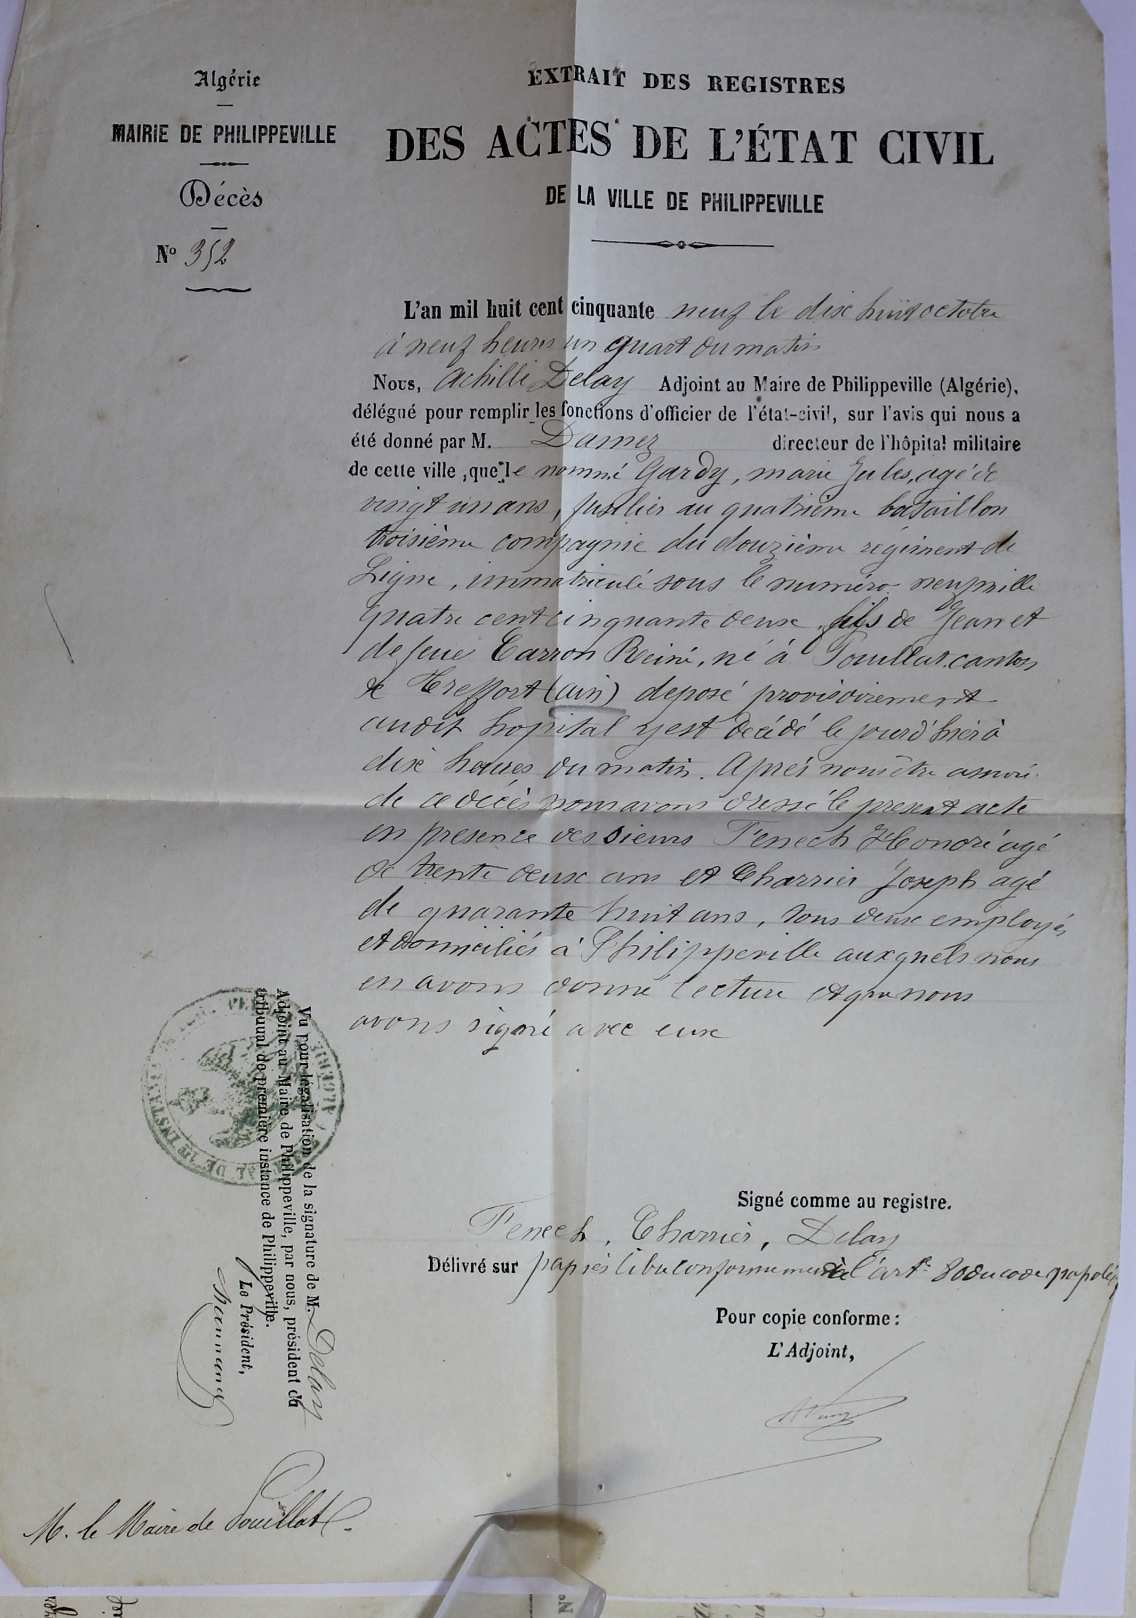 Algérie
MAIRIE DE PHILIPPEVILLE
Décès
N° 352
EXTRAIT DES REGISTRES
DES ACTES DE L'ÉTAT CIVIL
DE LA VILLE DE PHILIPPEVILLE
L'an mil huit cent cinquante neuf le dix huit octobre
à neuf heures un quart du matin
Nous, Achille Delay Adjoint au Maire de Philippeville (Algérie),
délégué pour remplir les fonctions d'officier de l'état-civil, sur l'avis qui nous a
été donné par M. Damez directeur de l'hôpital militaire
de cette ville, que le nommé Gardy, marie Jules, agé de
vingt un ans, fusilier au quatrième bataillon
troisième compagnie du douzième régiment de
Ligne, immatriculé sous le numéro neuf mille
quatre cent cinquante deux, fils de Jean et
de feue Carron Reine, né à Pouillat canton
de Treffort (ain) deposé provisoirement
audit hopital y est décédé le jourd'hier à
dix heures du matin. Après nous être assuré
de ce décès nous avons dressé le present acte
en presence des sieurs Fenech Honoré agé
de trente deux ans et Charrier Joseph agé
de quarante huit ans, tous deux employés
et domiciliés à Philippeville auxquels nous
en avons donné lecture et qui nous
avons signé avec eux
Signé comme au registre.
Fenech, Charrier, Delay
Délivré sur papier libre conformement à l'art. 80 du code napoléon
Pour copie conforme :
L'Adjoint,
Vu pour légalisation de la signature de M. Delay
Adjoint au Maire de Philippeville, par nous, président du
tribunal de première instance de Philippeville.
Le Président,
ALGÉRIE
M. le Maire de Pouillat.
N°